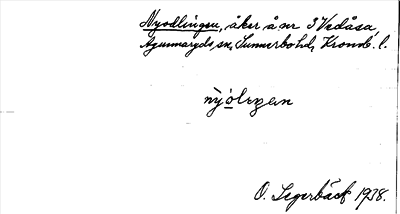 Nyodlingen, åker å nr 3 Vedåsa,
Agunnaryds sn, Sunnerbo hd, Kronob. l.
nyólıŋen
O. Segerbäck 1938.